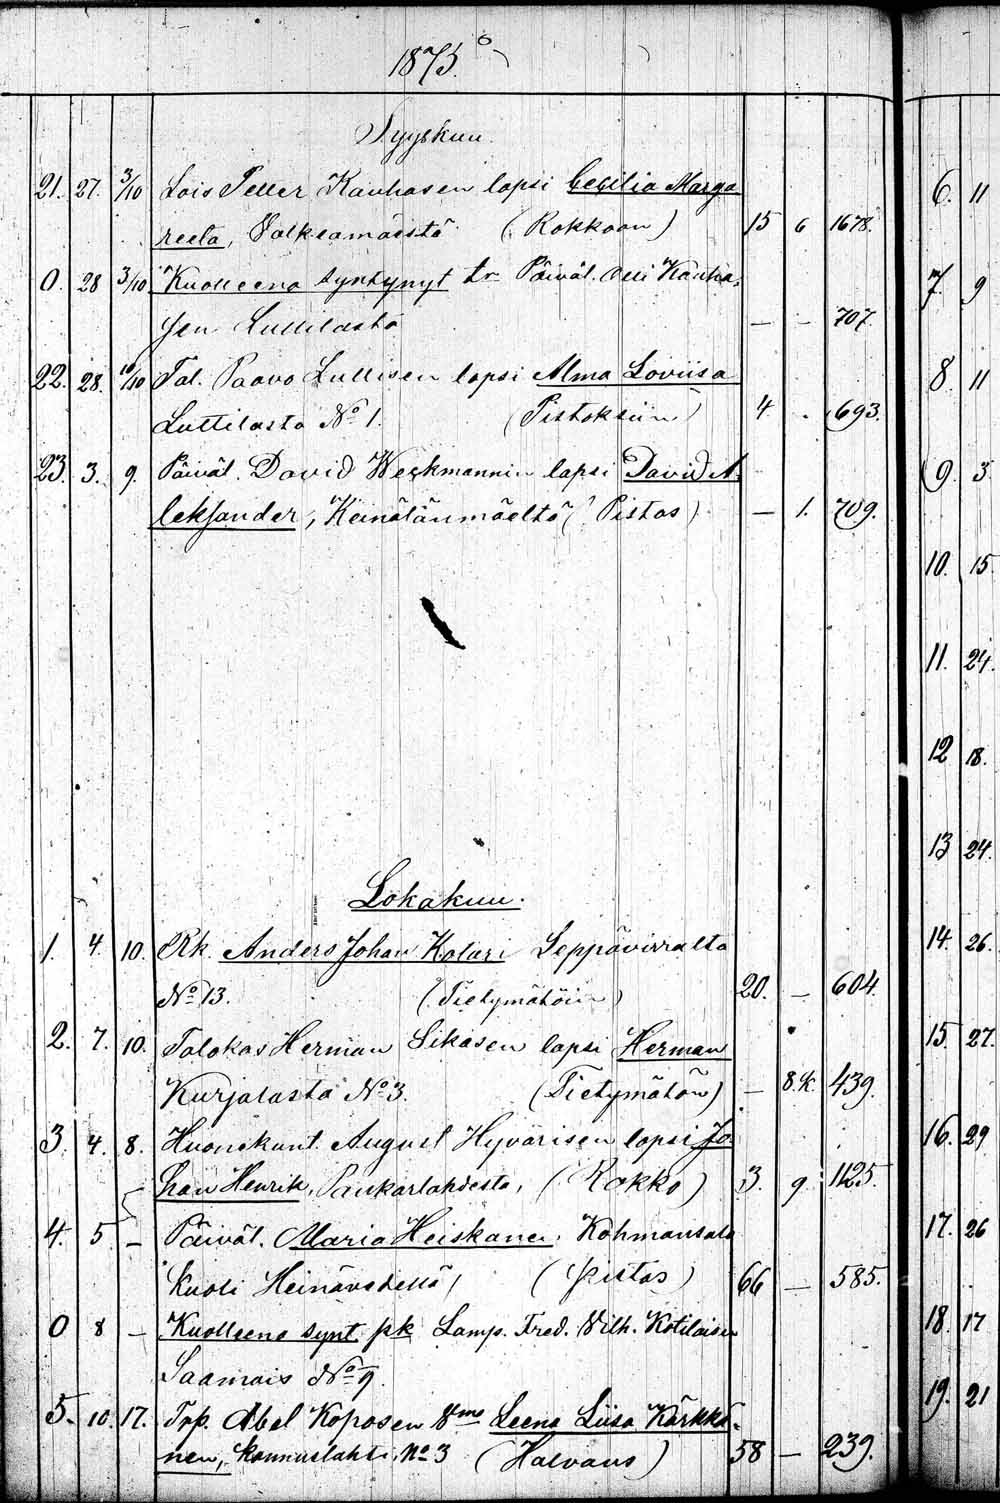 1875.
Syyskuu.
21. 27. 3/10 Lois Petter Kauhasen lapsi Cecilia Marga
reeta, Valkeamäestä (Rokkoon) 15 6 1678.
0. 28 3/10 Kuolleena syntynyt tr Päivät. Olli Kauha-
sen Luttilasta — — 707.
22. 28. 10/10 Tal. Paavo Lullisen lapsi Alma Loviisa
Luttilasta No 1. (Pistoksiin) 4 . 693.
23. 3. 9. Päivät. David Weckmannin lapsi David A-
leksander, Keinälänmäeltä (Pistos) — 1. 709.
Lokakuu.
1. 4. 10. Rk. Anders Johan Kolari Leppävirralta
No 13. (Tietymätöin) 20. — 604.
2. 7. 10. Talokas Herman Sikasen lapsi Herman
Kurjalasta No 3. (Tietymätön) — 8.k. 439.
3. 4. 8. Huonekunt. August Hyvärisen lapsi Jo-
han Henrik, Paukarlahdesta, (Rokko) 3. 9. 1125.
4. 5 — Päivät. Maria Heiskanen, Kohmansalo
kuoli Heinävedellä, (Pistos) 66 — 585.
0 8 — Kuolleena synt. pk Lamp. Fred. Vilh. Kotilaisen
Saamais No 9.
5. 10. 17. Trp. Abel Koposen Vmo Leena Liisa Kärkkä-
nen, Konnuslahti, No 3 (Halvaus) 58 — 239.
6. 11
7. 9
8. 11
9. 3
10. 15.
11. 24.
12 18.
13 24.
14. 26.
15. 27.
16. 29
17. 26
18. 17
19. 21